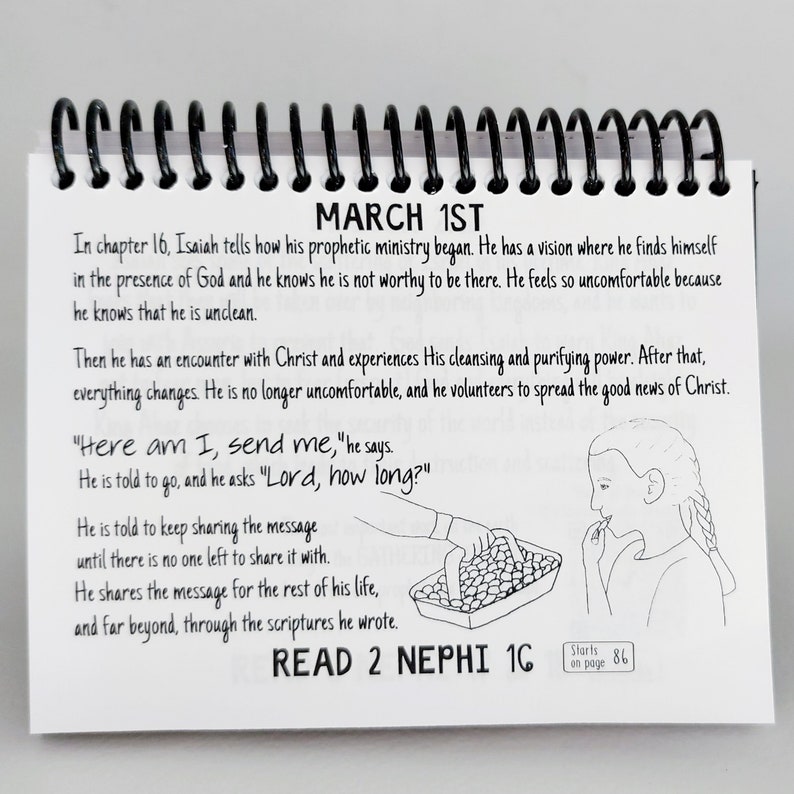 MARCH 1ST
In chapter 16, Isaiah tells how his prophetic ministry began. He has a vision where he finds himself
in the presence of God and he knows he is not worthy to be there. He feels so uncomfortable because
he knows that he is unclean.
Then he has an encounter with Christ and experiences His cleansing and purifying power. After that,
everything changes. He is no longer uncomfortable, and he volunteers to spread the good news of Christ.
"Here am I, send me," he says.
He is told to go, and he asks "Lord, how long?"
He is told to keep sharing the message
until there is no one left to share it with.
He shares the message for the rest of his life,
and far beyond, through the scriptures he wrote.
READ 2 NEPHI 16
Starts
on page 86